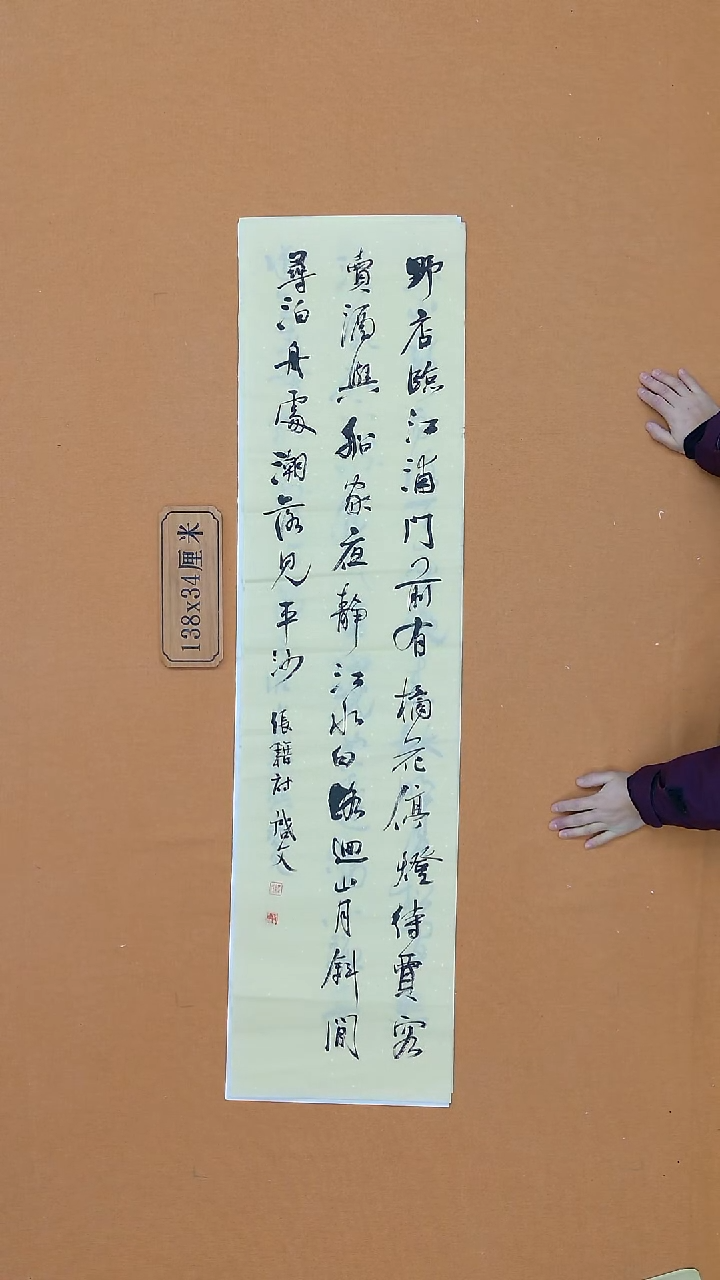 野店臨江浦門前有橘花停燈待賈客
賣酒與船家夜靜江水白路迴山月斜閒
尋泊舟處潮落見平沙 張籍詩 文
138x34厘米